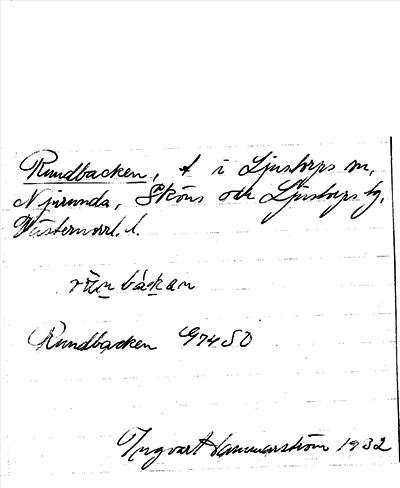 Rundbacken, t i Ljustorps sn,
Njurunda, Sköns och Ljustorps tg,
Västernorrl. l.
bákan
Rundbacken G74 SO
Ingvart Hammarström 1932